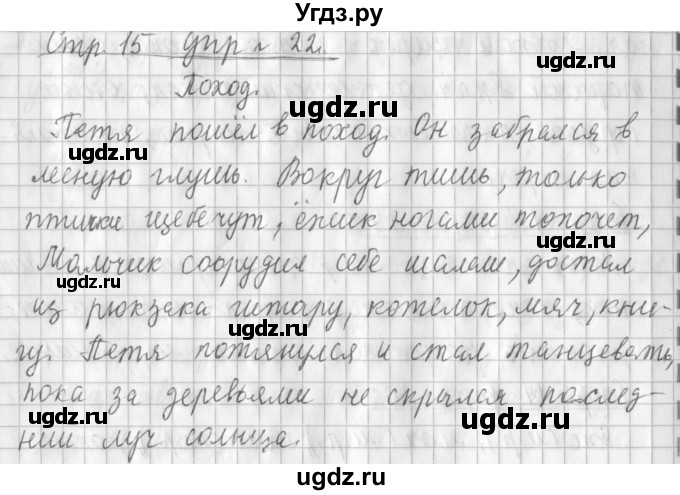 Угдз.ру
Стр. 15 упр № 22.
Поход.
ugdz.ru
ugdz.ru
Петя пошёл в поход. Он забрался в
ugdz.ru
ugdz.ru
лесную глушь. Вокруг тишь, только
птички щебечут, ёжик ногами топочет,
ugdz.ru
Мальчик соорудил себе шалаш, достал
ugdz.ru
из рюкзака гитару, котелок, мяч, кни-
ugdz.ru
гу. Петя потянулся и стал танцевать,
ugdz.ru
пока за деревьями не скрылся послед-
ugdz.ru
ugdz.ru
ний луч солнца.
ugdz.ru